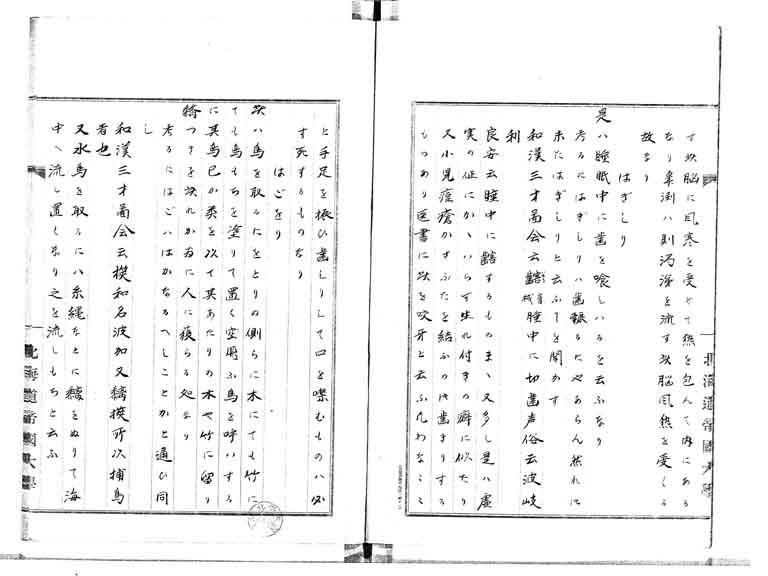 す故脳に風寒を受とて熱を包んて内にある
なり鼻渕ハ則濁涕を流す故脳風熱を受くる
故なり
はぎしり
是ハ睡眠中に歯を喰しハるを云ふなり
考るにはぎしりハ歯振るにやあらん然れに
未たはぎしりと云ふを聞かす
和漢三才畧会云齘睡中に切歯声俗云波岐
利
良安云睡中に齘するものまゝ又多し是ハ虚
実の証にかゝいらす生れ付きの癖に似たり
又小児痘瘡かすふたを結ふの時歯まりする
もつあり医書に故を咬牙と云ふ凡わなゝミ
北海道帝國大學
と手足を振ひ歯しりして口を噤むものハ必
す死するものなり
はごをり
故ハ鳥を取るにをとりの側らに木にても竹に
ても鳥もちを塗りて置く空飛ふ鳥を呼ハする
に其鳥已か類を以て其あたりの木や竹に留り
黐つきを放れかねに人に獲らる処なり
考るにはごハはかなるへしことかと通ひ同
し
和漢三才畧会云擌和名波加又黐擌所以捕鳥
者也
又水鳥を取るにハ糸縄なとに黐をぬりて海
中へ流し置くなり之を流しもちと云ふ
北海道帝國大學